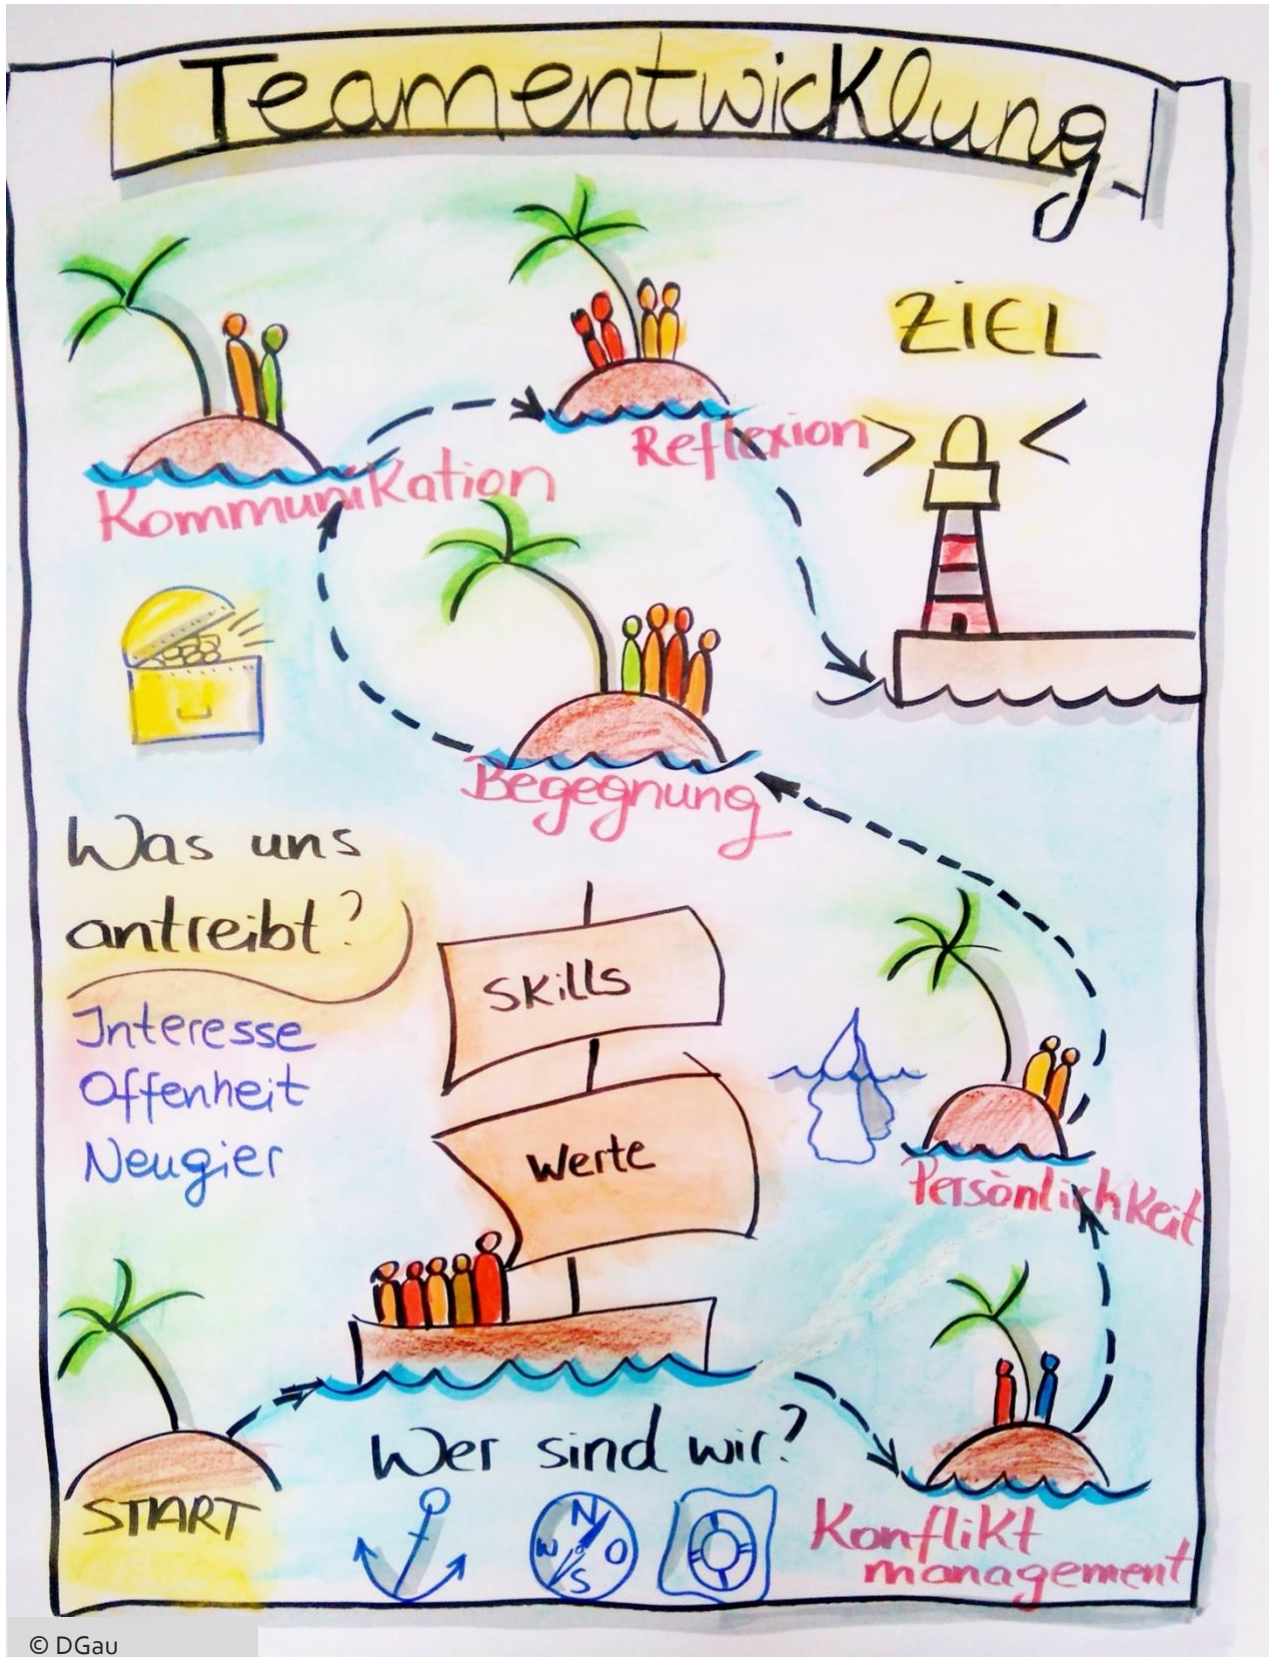 Teamentwicklung
ZIEL
Reflexion
Kommunikation
Begegnung
Was uns
antreibt?
Interesse
Offenheit
Neugier
SKills
Werte
Persönlichkeit
START
Wer sind wir?
N
W O
S
Konflikt
management
© DGau